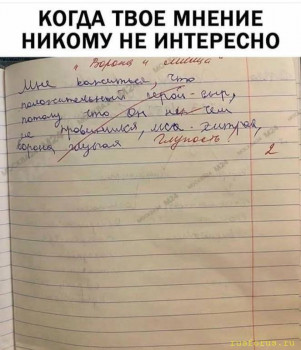 КОГДА ТВОЕ МНЕНИЕ
НИКОМУ НЕ ИНТЕРЕСНО
"Ворона и лисица"
Мне кажиться, что
положительный герой - сыр,
потому что он не чем
не провинился, лиса - хитрая,
ворона глупая Глупость
2